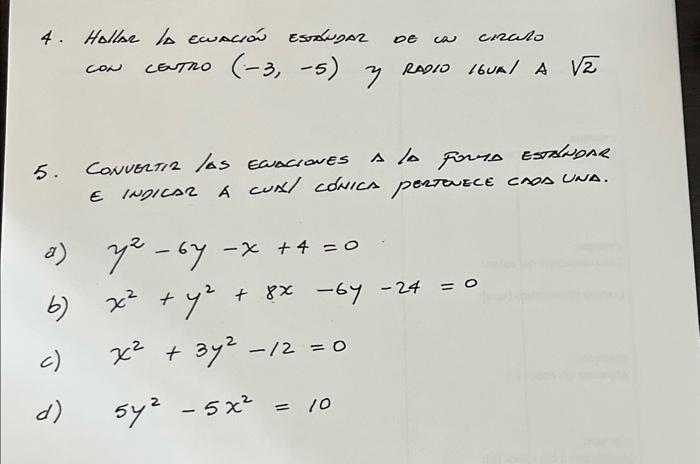 4. Hallar la ecuación estándar de un círculo
con centro (-3, -5) y radio igual a √2
5. Convertir las ecuaciones a la forma estándar
e indicar a cual cónica pertenece cada una.
a) y² - 6y - x + 4 = 0
b) x² + y² + 8x - 6y - 24 = 0
c) x² + 3y² - 12 = 0
d) 5y² - 5x² = 10